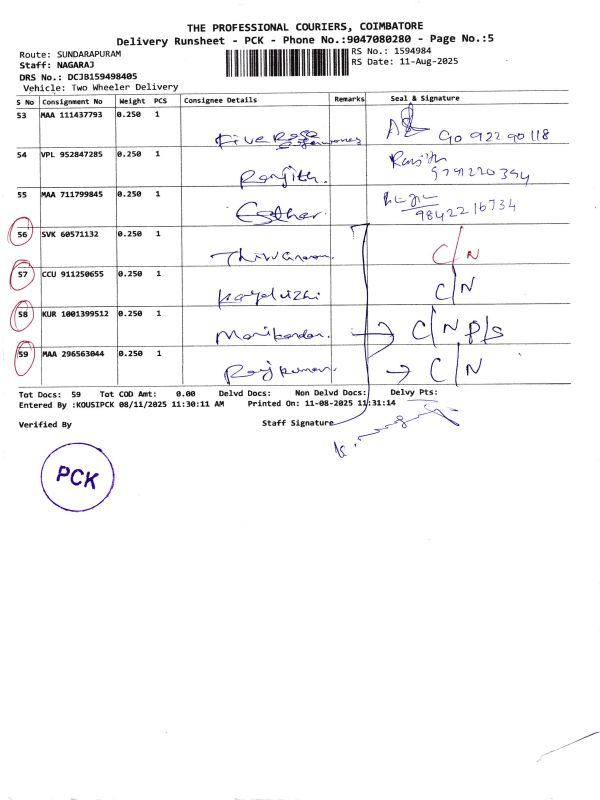 THE PROFESSIONAL COURIERS, COIMBATORE
Delivery Runsheet - PCK - Phone No.:9047080280 - Page No.:5
Route: SUNDARAPURAM RS No.: 1594984
Staff: NAGARAJ RS Date: 11-Aug-2025
DRS No.: DCJB159498405
Vehicle: Two Wheeler Delivery
S No Consignment No Weight PCS Consignee Details Remarks Seal & Signature
53 MAA 111437793 0.250 1 Five Rose 90 922 90118
54 VPL 952847285 0.250 1 Ranjith. Ranjith
9791220394
55 MAA 711799845 0.250 1 Esther.
9842216734
56 SVK 60571132 0.250 1 C/N
57 CCU 911250655 0.250 1 Kayalvizhi C/N
58 KUR 1001399512 0.250 1 Manikandan. C/N P/S
59 MAA 296563044 0.250 1 Rajkumar C/N
Tot Docs: 59 Tot COD Amt: 0.00 Delvd Docs: Non Delvd Docs: Delvy Pts:
Entered By :KOUSIPCK 08/11/2025 11:30:11 AM Printed On: 11-08-2025 11:31:14
Verified By Staff Signature
PCK